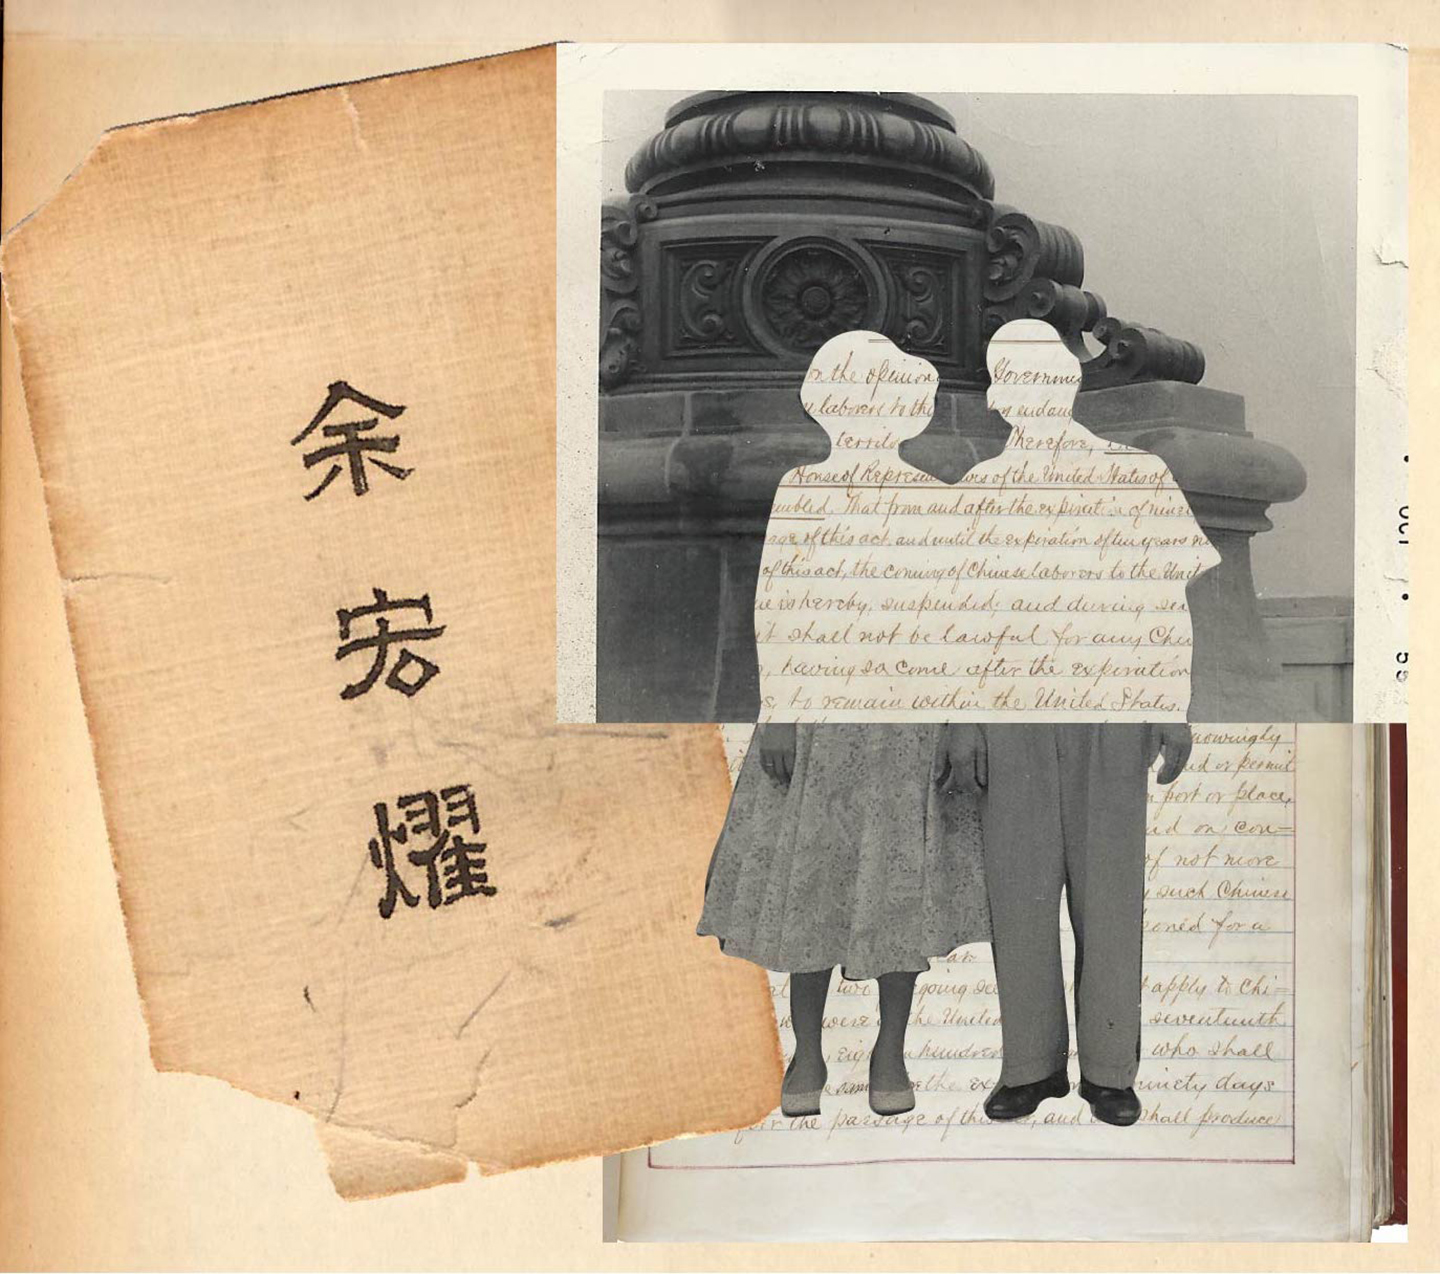 余
宏
燿
OCT • 55
on the opinion Governme
laborers to the endang
territo Therefore,
House of Represe ives of the United States of
embled, That from and after the expiration of nine
age of this act, and until the expiration of ten years ne
of this act, the coming of Chinese laborers to the Unit
is hereby, suspended; and during
it shall not be lawful for any Chi
, having so come after the expiration
to remain within the United States.
nowingly
nd or permit
port or place,
nd on con=
of not more
such Chinese
oned for a
two egoing sec t apply to Chi=
were the United seventeenth
eig n hundred who shall
same the ex ninety days
the passage of this and shall produce